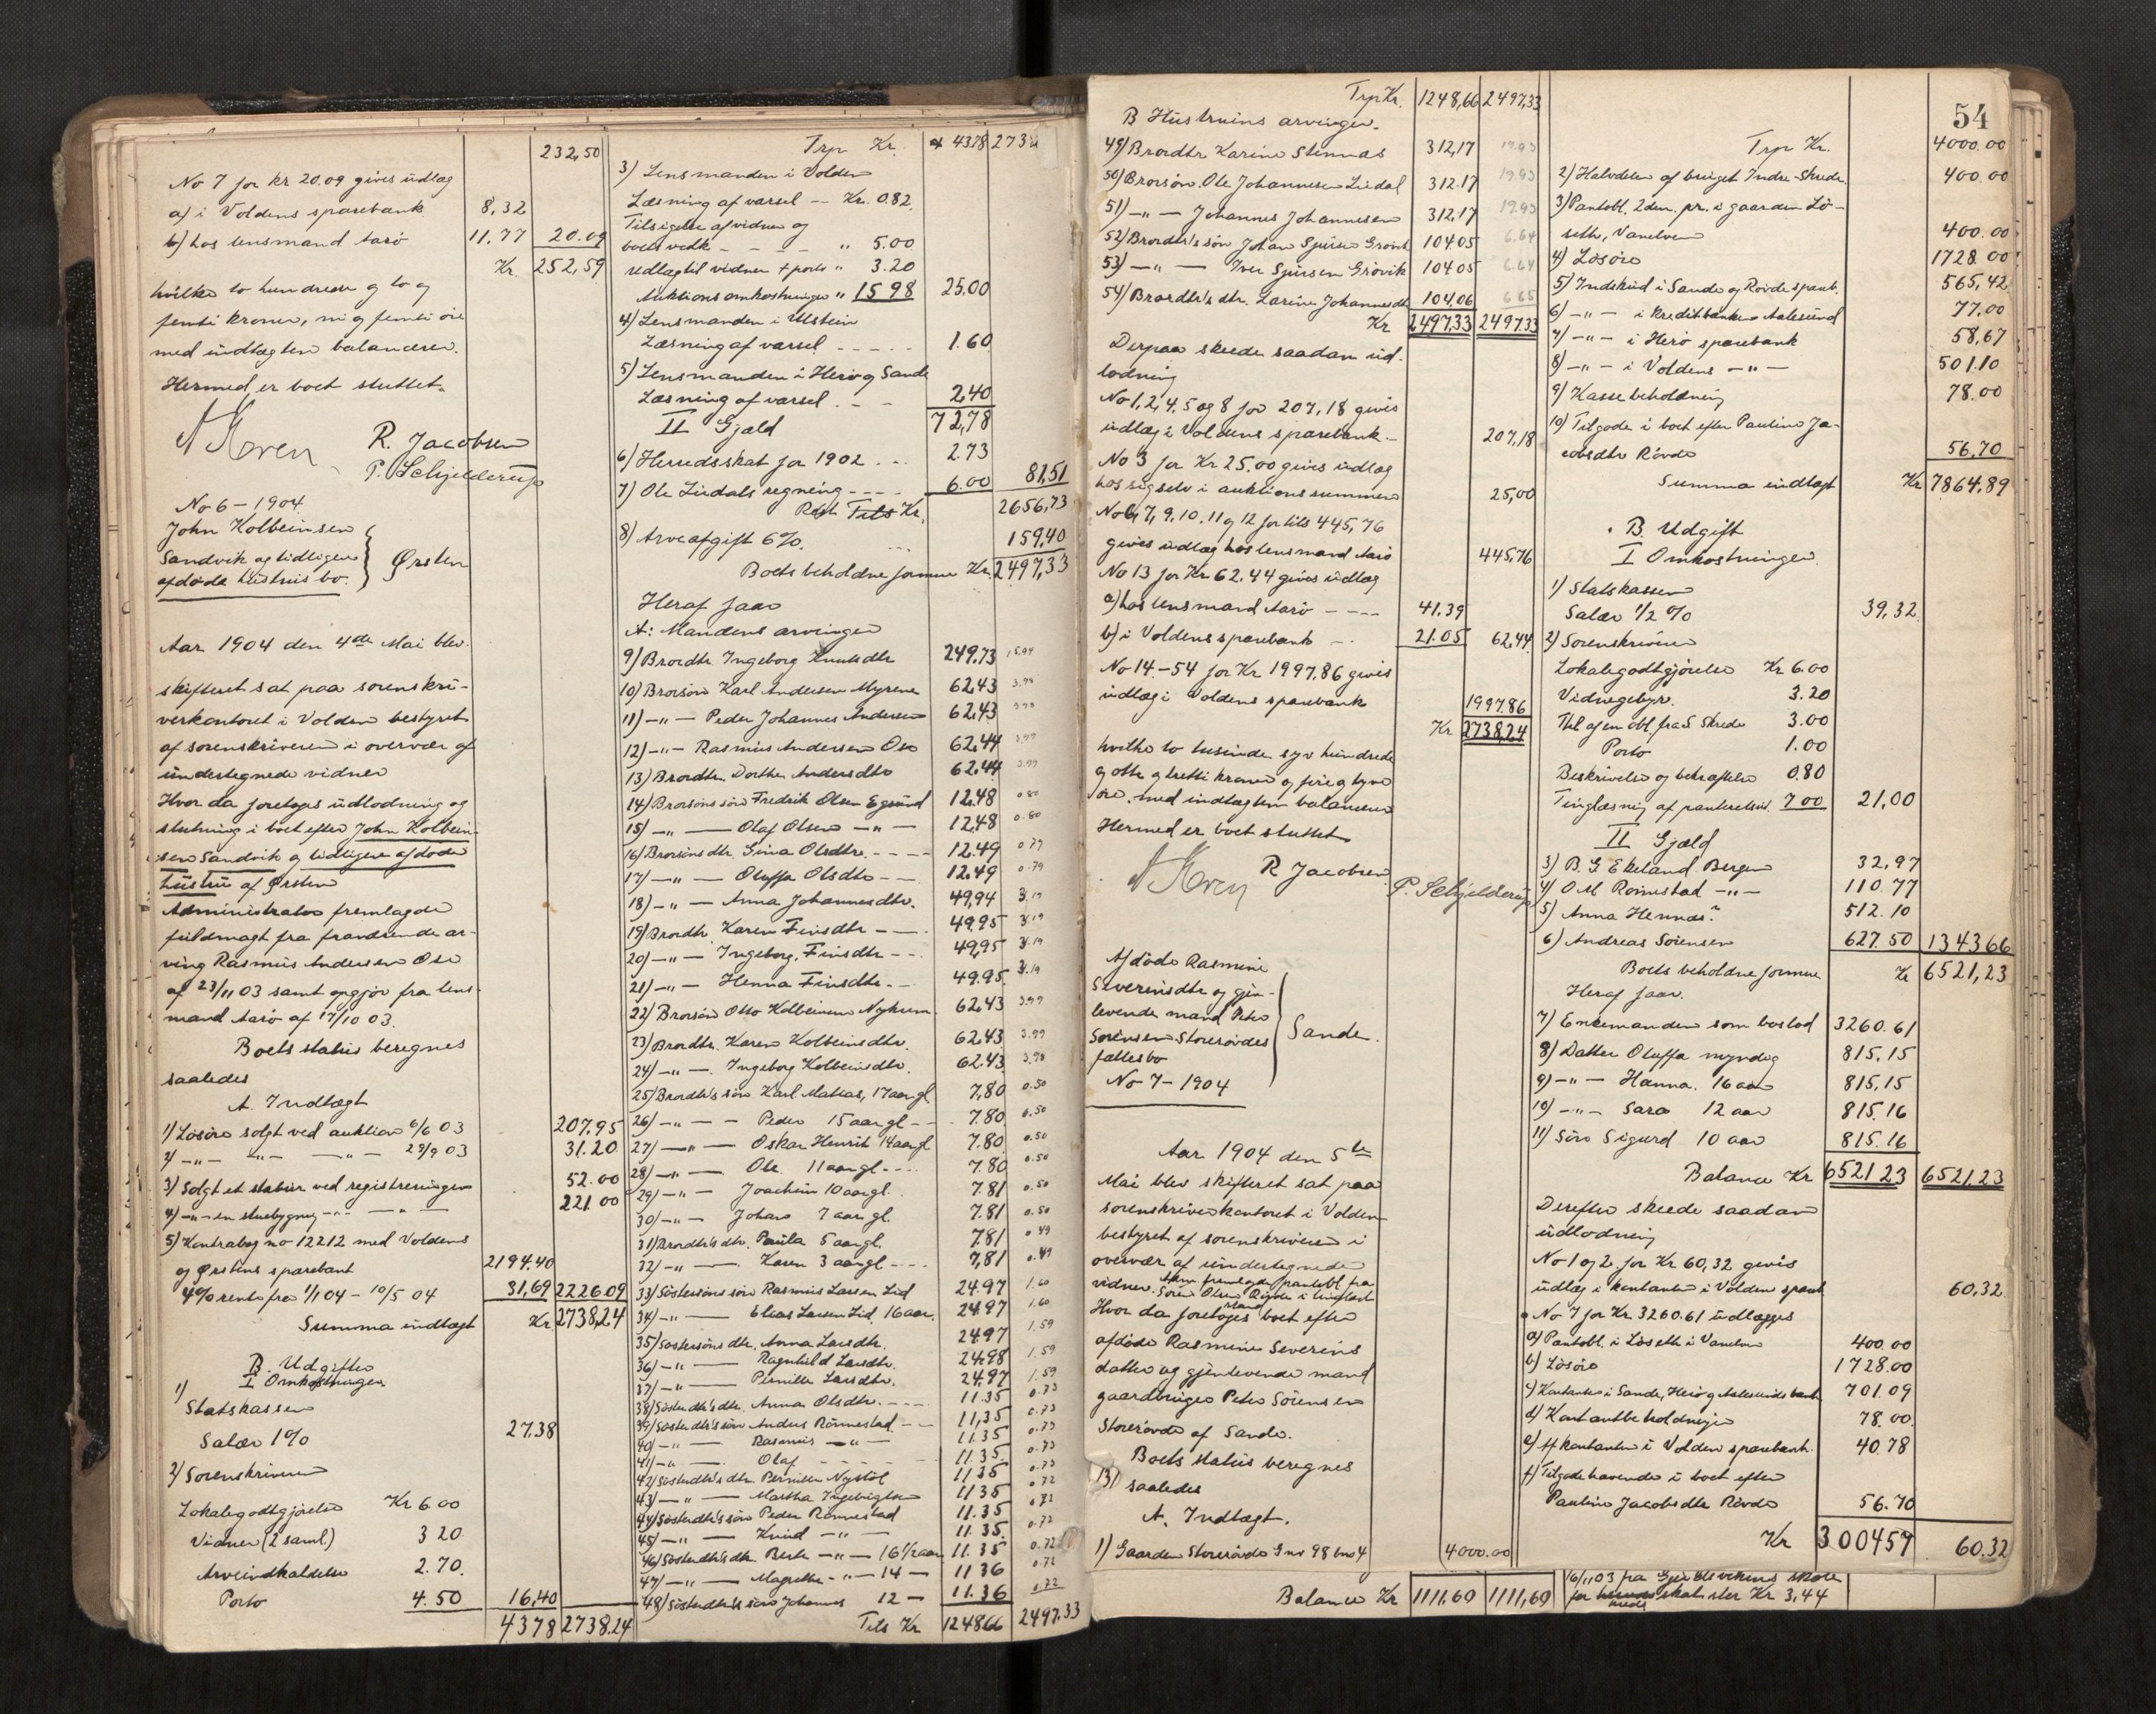 232,50
No 7 for kr 20.09 gives udlæg
a) i Voldens sparebank 8,32
b) hos lensmand Aarö 11.77 20.09
Kr. 252,59
hvilke to hundrede og to og
femti kroner, ni og femti öre
med indtægten balancerer.
Hermed er boet sluttet.
R. Jacobsen
P. Schjelderup
No 6 - 1904
John Kolbeinsen
Sandvik og tidligere
afdöde hustrus bo.
Ørsten
Aar 1904 den 4de Mai blev
skifteret sat paa sorenskri-
verkontoret i Volden bestyret
af sorenskriveren i overvær af
undertegnede vidner
Hvor da foretoges udlodning og
slutning i boet efter John Kolbein-
sen Sandvik og tidligere afdöde
hustru af Ørsten
Administrator fremlagde
fuldmagt fra fraværende ar-
ving Rasmus Andersen Ose
af 23/11 03 samt opgjör fra lens-
mand Aarö af 17/10 03.
Boets status beregnes
saaledes
A. Indtægt
1) Lösöre solgt ved auktion 6/6 03 207.95
2) -"- -"- -"- 29/9 03 31.20
3) Solgt et stabur ved registreringen 52.00
4) -"- en stuebygning -"- -"- 221.00
5) Kontrabog no 12212 med Voldens
og Ørstens sparebank 2194.40
4% rente fra 1/1 04 - 10/5 04 31,69 2226.09
Summa indtægt Kr 2738,24
B. Udgifter
I Omkostninger
1) Statskassen
Salær 1% 27.38
2) Sorenskriveren
Lokalegodtgjörelse Kr 6.00
Vidner (2 saml.) 3 20
Arveindkaldelse 2.70.
Porto 4.50 16,40
4378 2738.24
Trp Kr. 4378 273
3) Lensmanden i Volden
Læsning af varsel -- Kr. 0.82
Tilsigelse af vidner og
boet vedk - - - " 5.00
Udlagt til vidner + porto " 3.20
Auktionsomkostninger " 15 98 25.00
4) Lensmanden i Ulstein
Læsning af varsel - - - - 1.60
5) Lensmanden i Herö og Sande
Læsning af varsel - - 2,40
72,78
II Gjæld
6) Herredsskat for 1902 - - - 2.73
7) Ole Lidals regning - - - - 6.00 81,51
Rest Tils Kr. 2656,73
8) Arveafgift 6% - - - 159,40
Boets beholdne formue Kr. 2497,33
Heraf faar
A: Mandens arvinger
9) Brordtr Ingeborg Knutsdtr 249,73 15.94
10) Brorsön Karl Andersen Myrene 62,43 3.98
11) -"- Peder Johannes Andersen 62,43 3.99
12) -"- Rasmus Andersen Ose 62,44 3.99
13) Brordtr. Dorthe Andersdtr 62,44 3.99
14) Brorsöns sön Fredrik Olsen Egsund 12,48 0.80
15) -"- Olaf Olsen -"- 12,48 0.80
16) Brorsöns dtr. Gina Olsdtr. - - - 12.49 0 79
17) -"- Oluffa Olsdtr - - 12.49 0.79
18) -"- Anna Johannesdtr. 49,94 3,19
19) Brordtr. Karen Finsdtr - - 49.95 3,19
20) -"- Ingeborg Finsdtr - - 49,95 3,19
21) -"- Henna Finsdtr - - 49.95 3,19
22) Brorsön Otto Kolbeinsen 62,43 3.99
23) Brordtr. Karen Kolbeinsdtr. 62,43 3.99
24) -"- Ingeborg Kolbeinsdtr. 62.43 3.98
25) Brordtr's sön Karl Matias, 17 aar gl. 7,80 0.50
26) -"- Peder 15 aar gl - - 7.80 0.50
27) -"- Oskar Henrik 14 aar gl 7.80 0.50
28) -"- Ole 11 aar gl - - - 7.80 0.50
29) -"- Joachim 10 aar gl. 7.81 0.50
30) -"- Johan 7 aar gl. 7.81 0.50
31) Brordtr's dtr. Paula 5 aar gl. 7.81 0.49
32) -"- Karen 3 aar gl - - 7,81 0.49
33) Söstersöns sön Rasmus Larsen Lid 24.97 1.60
34) -"- Elias Larsen Lid. 16 aar. 24.97 1.60
35) Söstersöns dtr. Anna Larsdtr. 24.97 1.59
36) -"- Ragnhild Larsdtr. 24.98 1.59
37) -"- Pernille Larsdtr. 24.97 1.59
38) Sösterdtr's dtr. Anna Olsdtr. - - - 11.35 0.73
39) Sösterdtr's sön Anders Rönnestad - - 11,35 0.73
40) -"- Rasmus -"- 11.35 0.73
41) -"- Olaf - - - 11.35. 0.73
42) Sösterdtr's dtr Pernille Nystöl 11 35 0.73
43) -"- Martha Ingebrigtsen 11 35 0.72
44) Sösterdtr's sön Peder Rönnestad 11.35 0.72
45) -"- Knud -"- 11 35. 0.72
46) Sösterdtr's dtr. Berte -"- 16 1/2 aar 11. 35 0.72
47) -"- Magrethe -"- 14 - 11 36 0.72
48) Sösterdtr's sön Johannes 12 - 11.36 0.72
Tils Kr 1248,66 2497.33
Trp Kr. 1248,66 2497,33
B Hustruens arvinger.
49) Brordtr Karine Stennas 312,17 19.93
50) Brorsön. Ole Johannesen Lidal 312.17 19.93
51) -"- Johannes Johannesen 312,17 19.93
52) Brordtr's sön Johan Sjursen Grövik 104.05 6.64
53) -"- Iver Sjursen Grövik 104.05 6.64
54) Brordtr's dtr. Larine Johannesdtr 104.06 6 65
Kr 2497,33 2497.33
Derpaa skeede saadan ud-
lodning
No 1, 2, 4, 5 og 8 for 207,18 gives
udlæg i Voldens sparebank - 207,18
No 3 for Kr 25.00 gives udlæg
hos sig selv i auktionssummen 25,00
No 6, 7, 9, 10, 11 og 12 for tils 445,76
gives udlæg hos lensmand Aarö 445,76
No 13 for Kr 62.44 gives udlæg
a) hos lensmand Aarö - - - - 41.39
b) i Voldens sparebank - - 21.05 62,44
No 14 - 54 for Kr 1997,86 gives
udlæg i Voldens sparebank 1997.86
Kr 2738,24
hvilke to tusinde syv hundrede
og otte og tretti kroner og fire og tyve
öre, med indtægten balancerer
Hermed er boet sluttet
R Jacobsen
P. Schjelderup
Afdöde Rasmine
Severinsdtr og gjen-
levende mand Peter
Sörensen Storerövdes
fællesbo
No 7 - 1904
Sande.
Aar 1904 den 5te
Mai blev skifteret sat paa
sorenskriverkontoret i Volden
bestyret af sorenskriveren i
overvær af undertegnede
vidner.
Hvor da foretoges boet efter
afdöde Rasmine Severins
datter og gjenlevende mand
gaardbruger Peter Sörensen
Storerövde af Sande.
Boets status beregnes
saaledes
A. Indtægt.
1) Gaarden Storerövde Gno 98 bno 4 4000.00
Balance Kr 1111,60 1111,60
54
Trp Kr. 4000.00
2) Halvdelen af bruget Indre-Skrede. 400.00
3) Pantobl. 2den pr. i gaarden Lö-
seth, Vanelven 400.00
4) Lösöre 1728.00
5) Indskud i Sande og Rövde spareb. 565,42
6) -"- i kreditbanken Aalesund 77,00
7) -"- i Herö sparebank 58,67
8) -"- i Voldens -"- 501.10
9) Kassebeholdning 78.00
10) Tilgode i boet efter Pauline Ja-
cobsdtr Rövde 56,70
Summa indtægt Kr 7864,89
B. Udgift
I Omkostninger
1) Statskassen
Salær 1/2 % 39,32
2) Sorenskriveren
Lokalegodtgjörelse Kr 6.00
Vidnegebyr. 3.20
Tgl af en obl. fra S Skrede 3.00
Porto 1.00
Beskrivelse og bekræftelse 0.80
Tinglæsning af panteretsud. 7.00 21,00
II Gjæld
3) B. G Ekeland Bergen 32,97
4) O M Roinestad -"- 110.77
5) Anna Hennas? 512.10
6) Andreas Sörensen 627.50 1343,66
Boets beholdne formue Kr 6521,23
Heraf faar.
7) Enkemanden som boslod 3260.61
8) Datter Oluffa myndig 815,15
9) -"- Hanna. 16 aar 815,15
10) -"- Sara 12 aar 815.16
11) Sön Sigurd 10 aar 815.16
Balance Kr 6521 23 6521,23
Derefter skeede saadan
udlodning
No 1 og 2 for Kr 60,32 gives
udlæg i kontanter i Volden spareb. 60,32
No 7 for Kr. 3260.61 udlægges
a) Pantobl. i Löseth i Vanelven 400.00
b) Lösöre 1728.00
c) Kontanter i Sande, Herö og Aalesunds bank 701.09
d) Kontantbeholdningen 78.00.
e) kontanter i Volden sparebank. 40.78
f) Tilgodehavende i boet efter
Pauline Jacobsdtr Rövde 56.70
Kr 3004 57 60.32
16/11 03 fra
for skat stor Kr 3,44